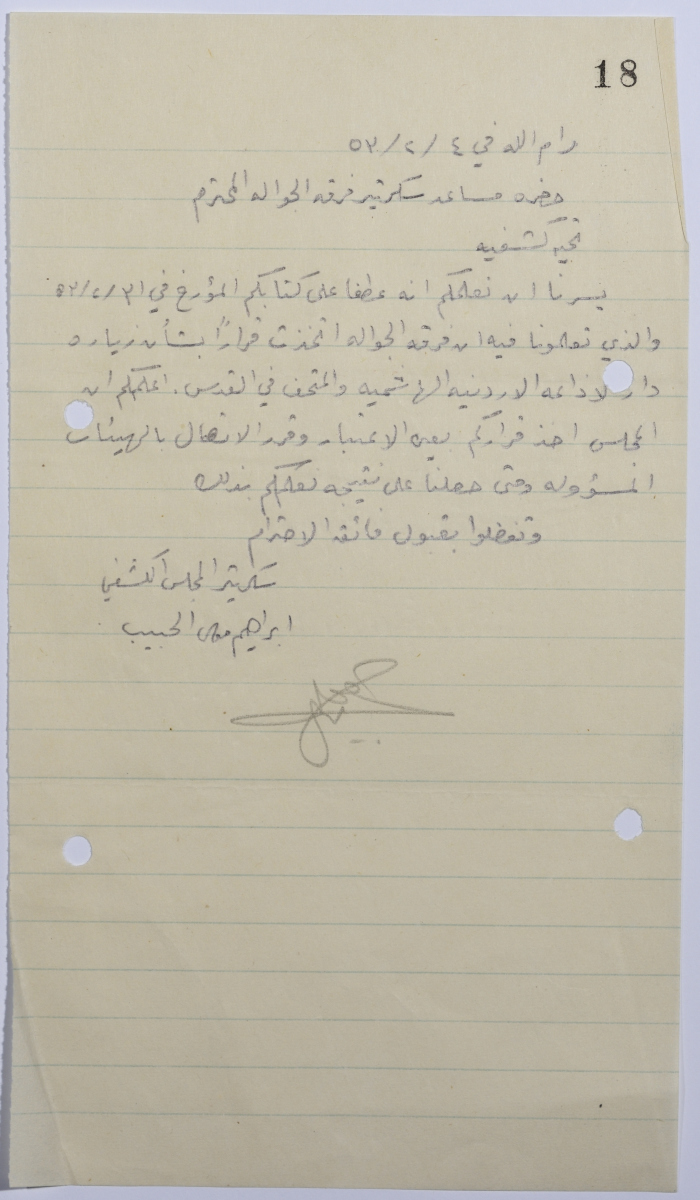 18
رام الله في ٤ /٢/ ٥٣
حضره مساعد سكرتير فرقه الجواله المحترم
تحيه كشفيه
يسرنا ان نعلمكم انه عطفا على كتابكم المؤرخ في
والذي تعلمونا فيه ان فرقه الجواله اتخذت قرارًا بشأن زياره
دار الاذاعه الاردنيه الهاشميه والمتحف في القدس. اعلمكم ان
المجلس اخذ قراركم بعين الاعتبار وقرر الاتصال بالهيئات
المسؤوله ومتى حصلنا على نتيجه نعلمكم بذلك
وتفضلوا بقبول فائق الاحترام
سكرتير المجلس الكشفي
ابراهيم الحبيب